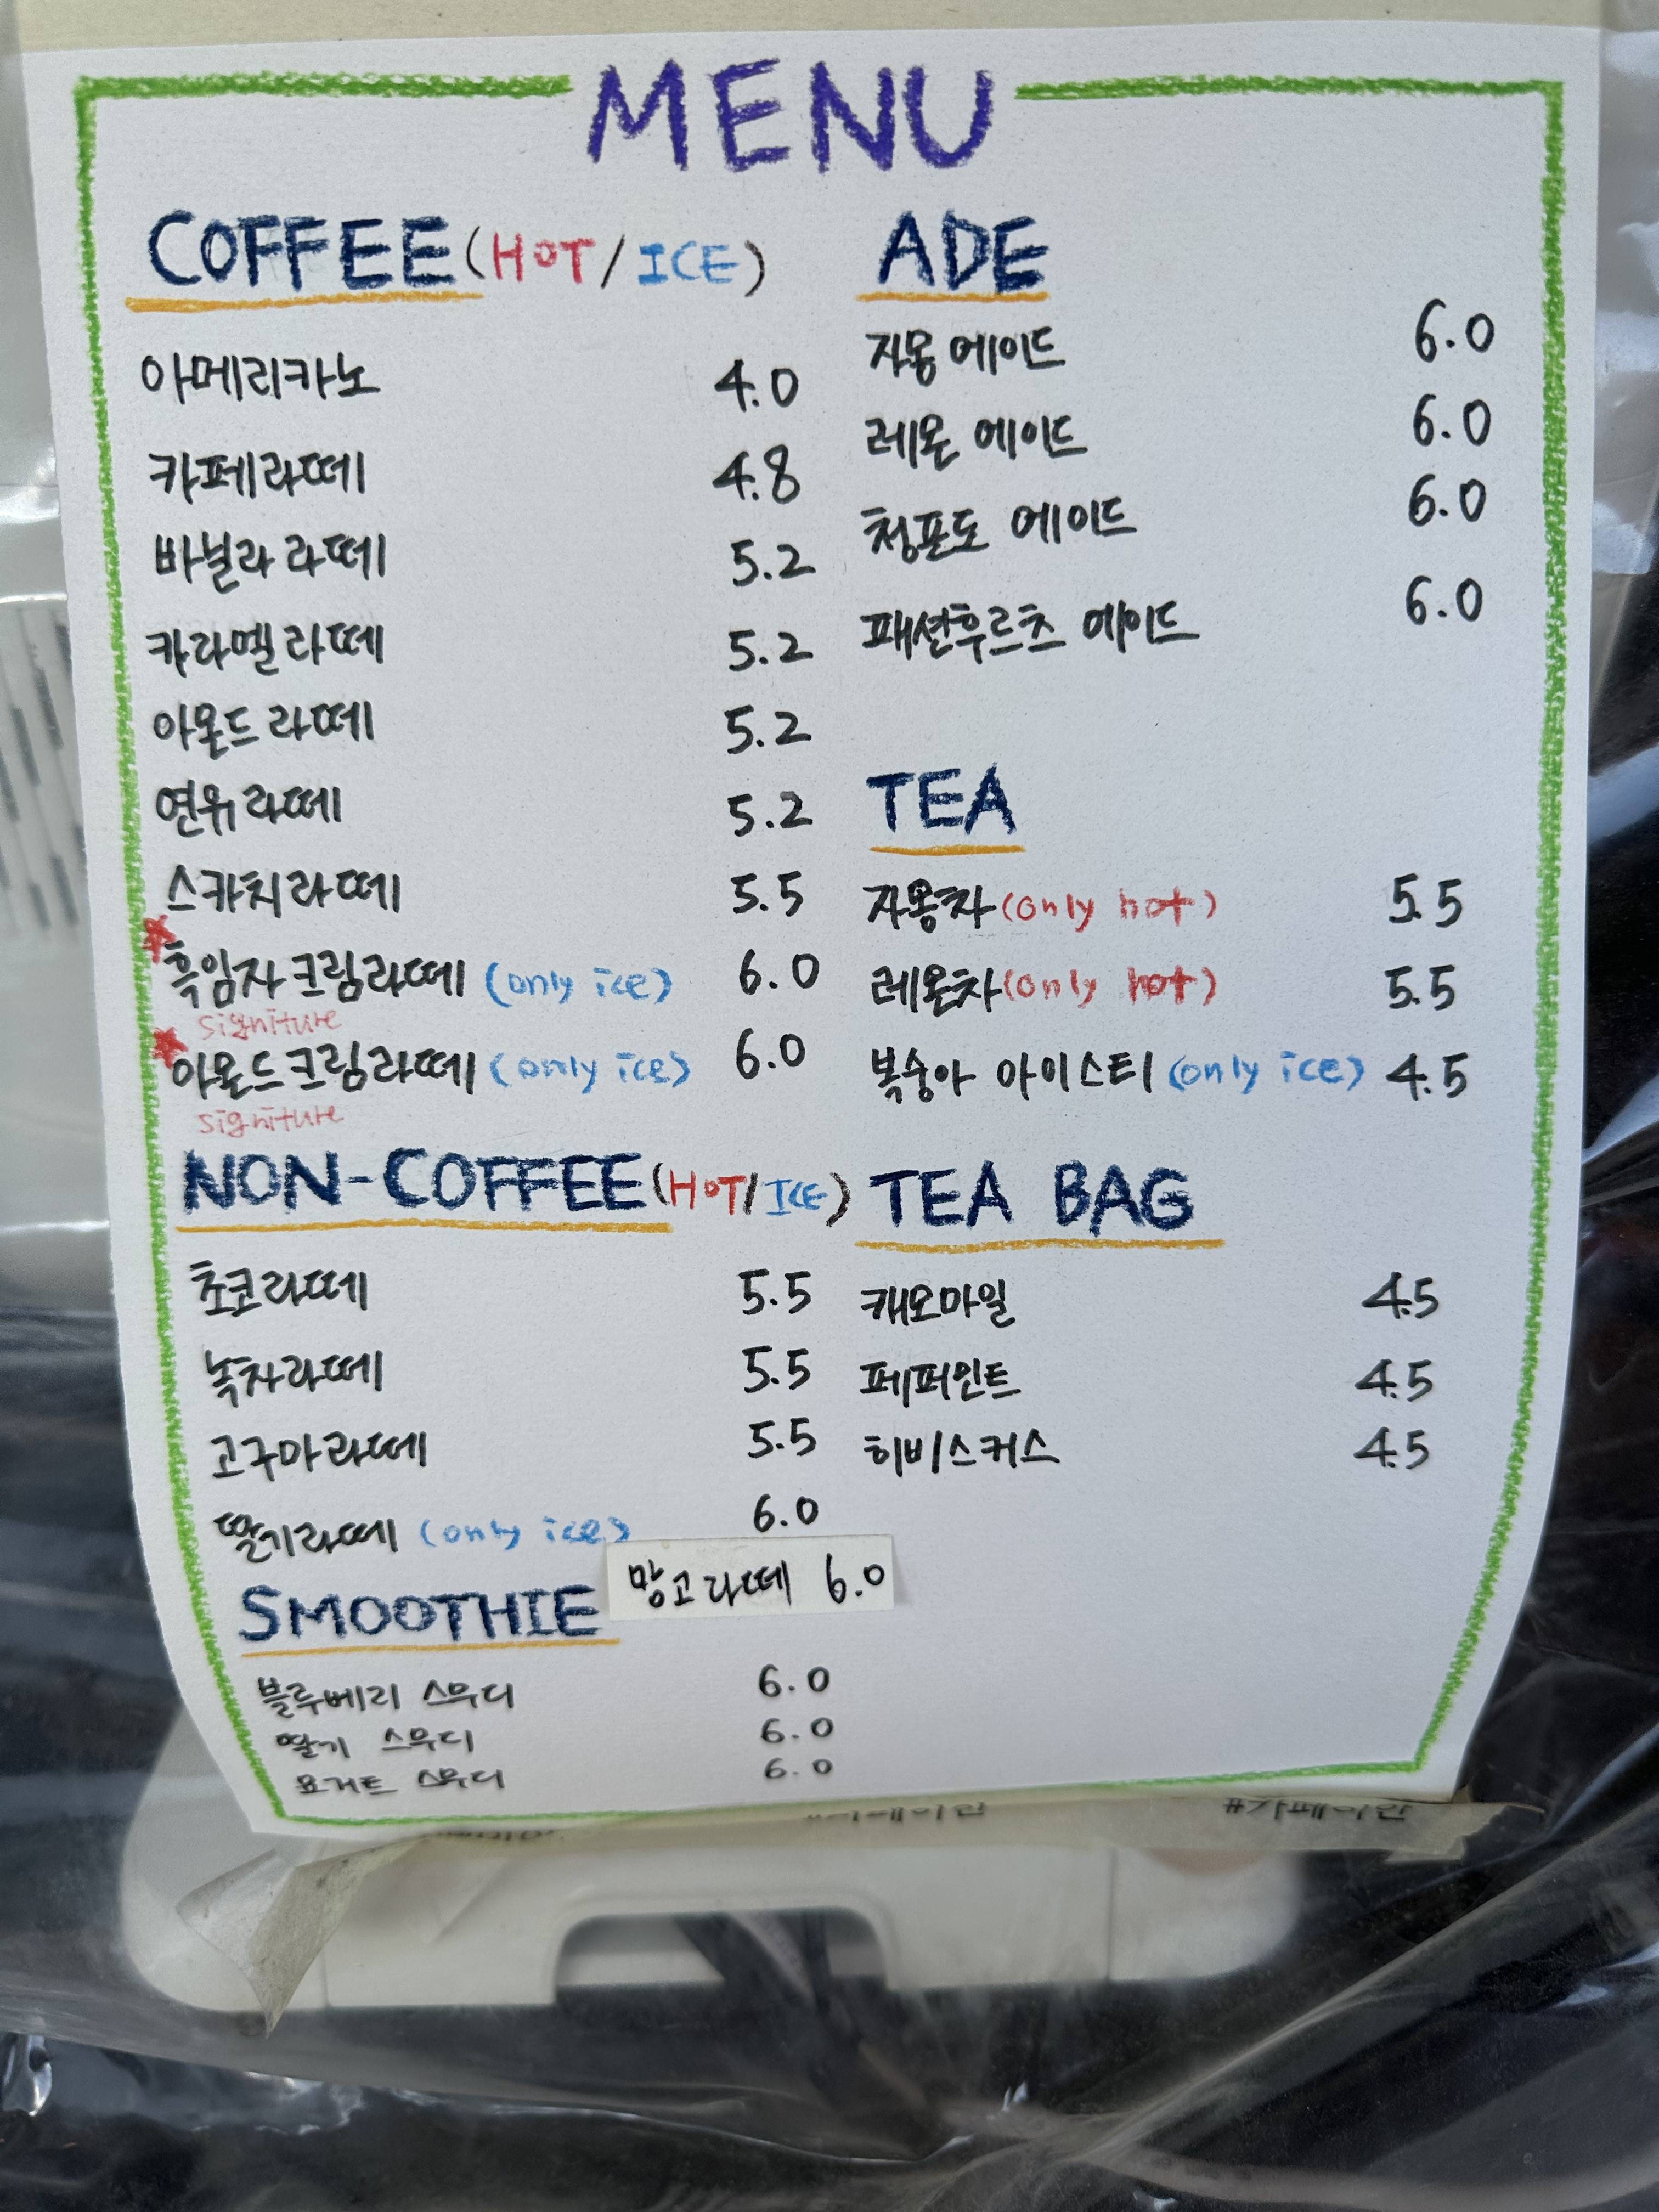 MENU
COFFEE (HOT/ICE)
아메리카노 4.0
카페라떼 4.8
바닐라 라떼 5.2
카라멜 라떼 5.2
아몬드 라떼 5.2
연유라떼 5.2
스카치라떼 5.5
흑임자크림라떼 (only ice) 6.0
signiture
아몬드크림라떼 (only ice) 6.0
signiture
NON-COFFEE (HOT/ICE)
초코라떼 5.5
녹차라떼 5.5
고구마라떼 5.5
딸기라떼 (only ice) 6.0
망고라떼 6.0
SMOOTHIE
블루베리 스무디 6.0
딸기 스무디 6.0
요거트 스무디 6.0
ADE
자몽 에이드 6.0
레몬 에이드 6.0
청포도 에이드 6.0
패션후르츠 에이드 6.0
TEA
자몽차 (only hot) 5.5
레몬차 (only hot) 5.5
복숭아 아이스티 (only ice) 4.5
TEA BAG
캐모마일 4.5
페퍼민트 4.5
히비스커스 4.5
#카페이란